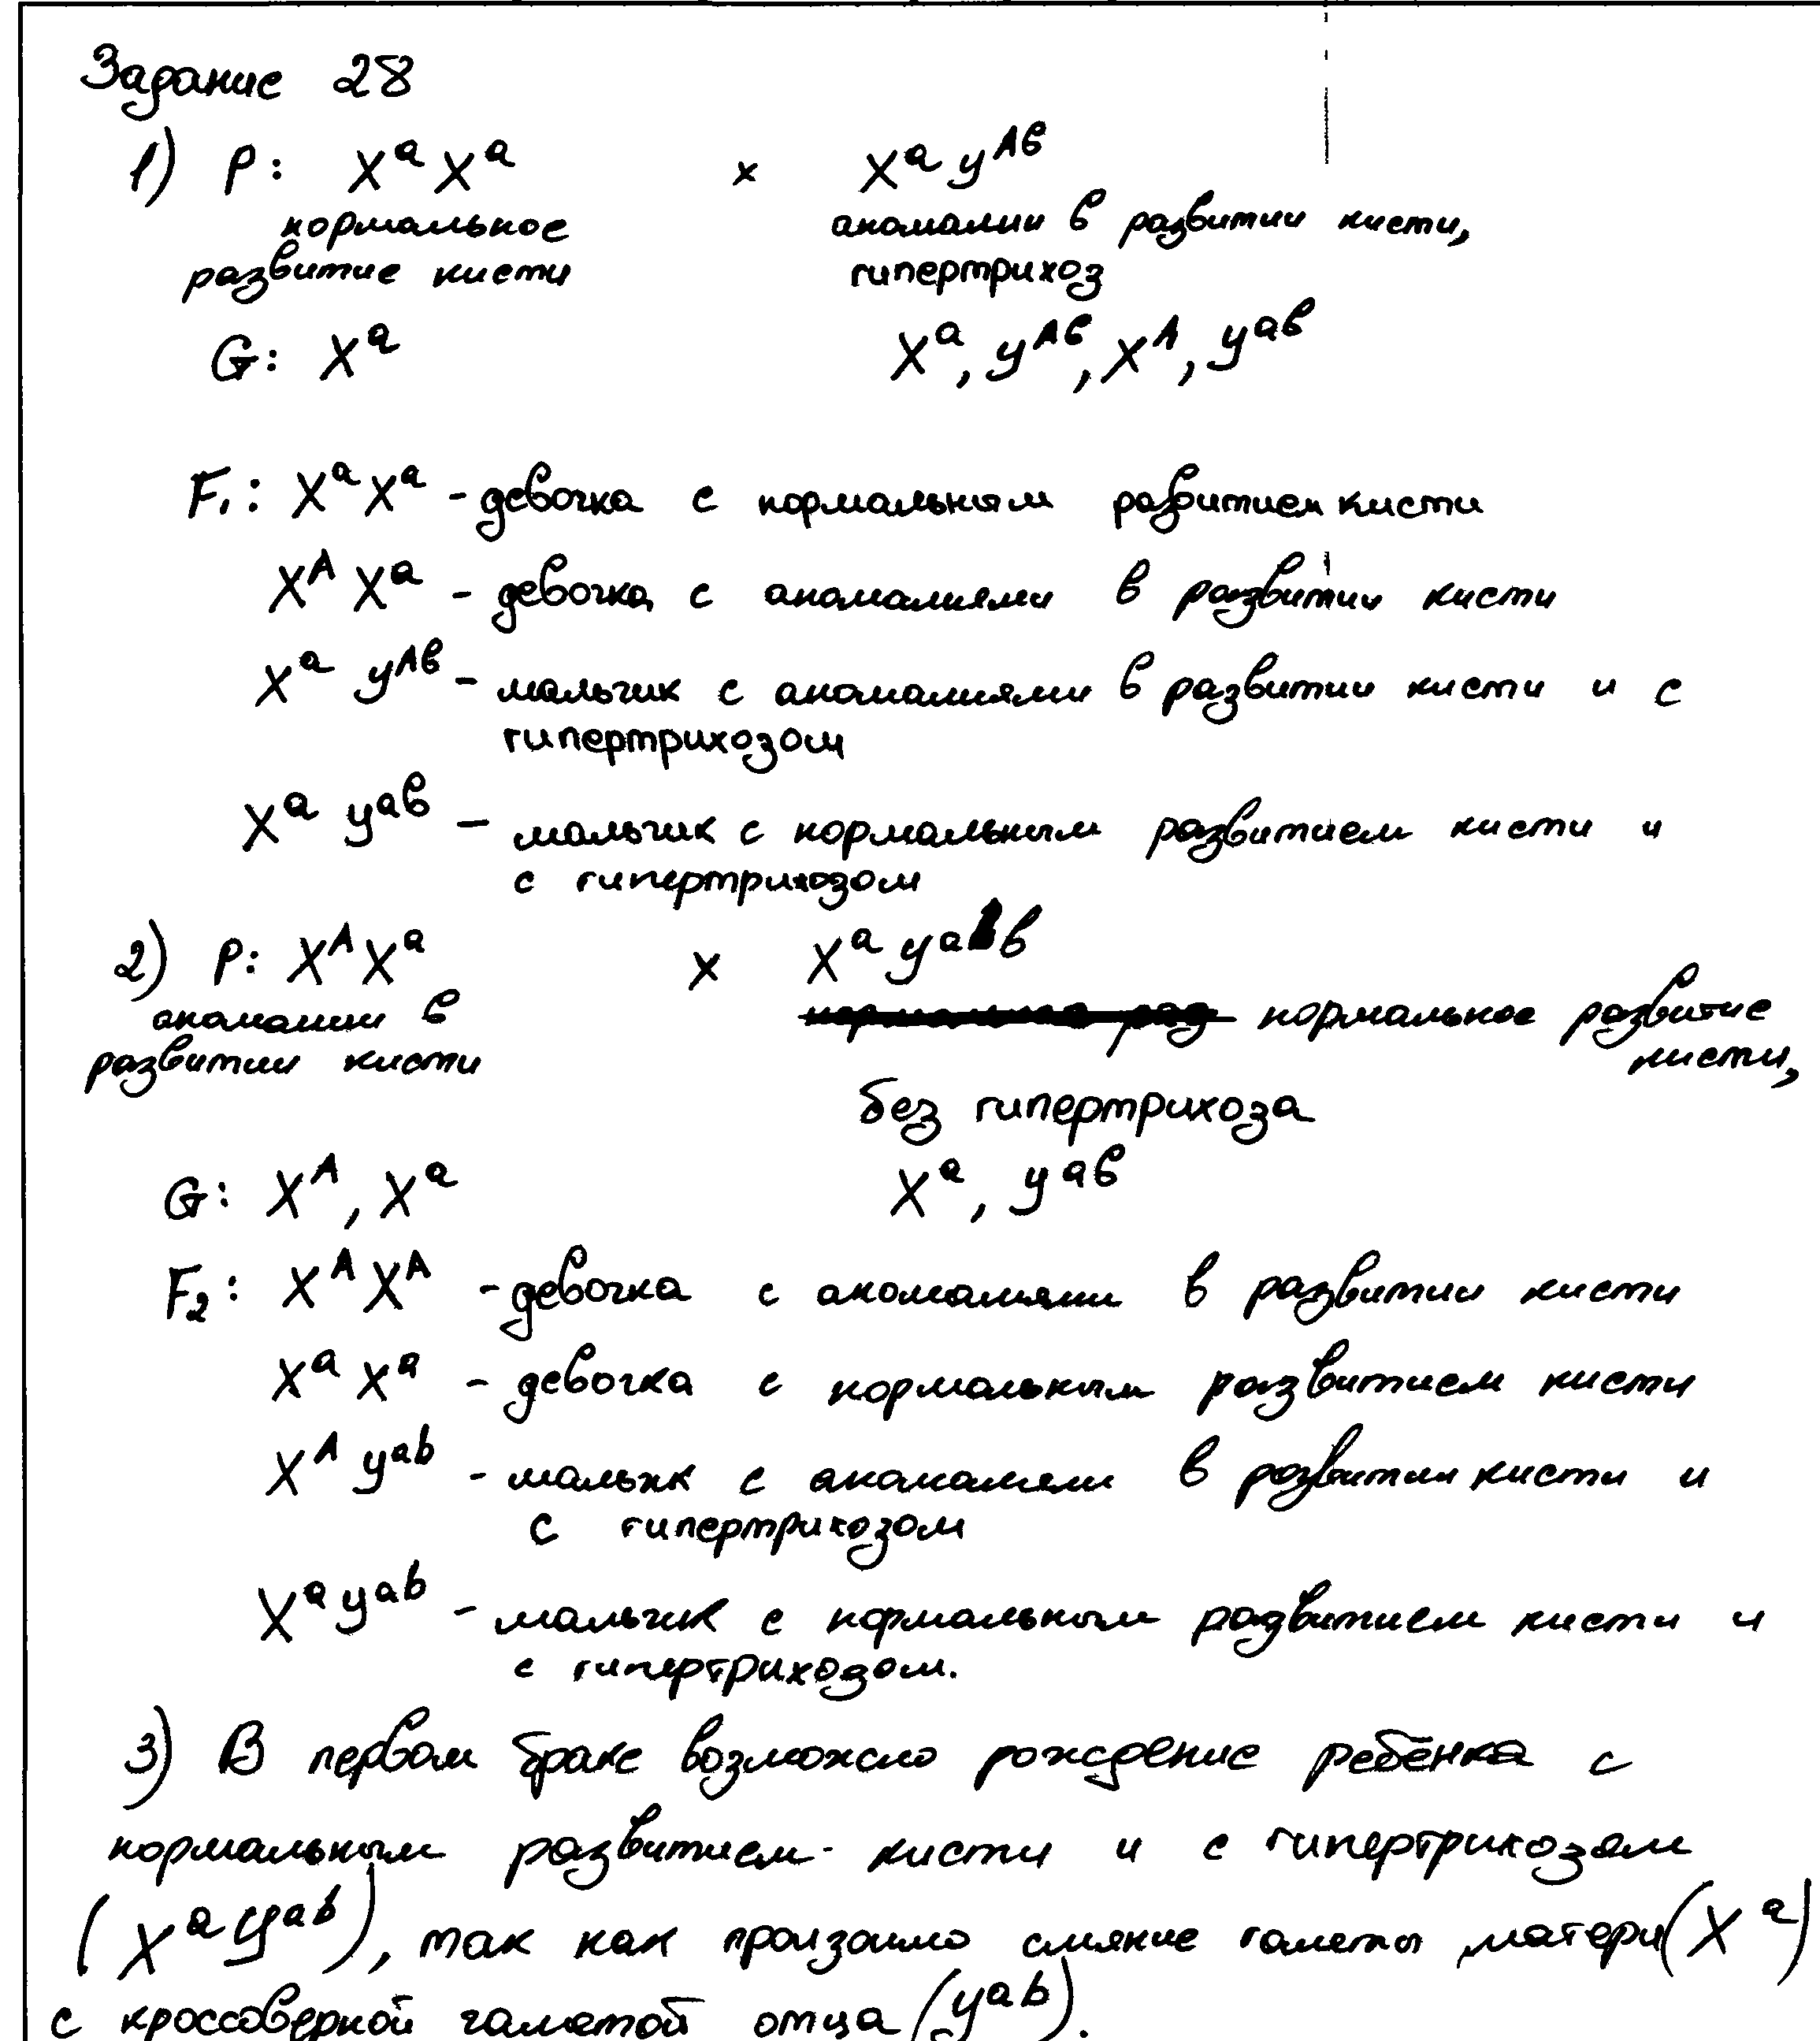 Задание 28
1) P: XᵃXᵃ × XᵃyAв
нормальное аномалии в развитии кисти,
развитие кисти гипертрихоз
G: Xᵃ Xᵃ, yAв, Xᴬ, yaв
F₁: XᵃXᵃ - девочка с нормальным развитием кисти
XᴬXᵃ - девочка с аномалиями в развитии кисти
Xᵃ yAв - мальчик с аномалиями в развитии кисти и с
гипертрихозом
Xᵃ yaв - мальчик с нормальным развитием кисти и
с гипертрихозом
2) P: XᴬXᵃ × Xᵃ yaв
аномалии в нормальное развитие
развитии кисти кисти,
без гипертрихоза
G: Xᴬ, Xᵃ Xᵃ, yaв
F₂: XᴬXᴬ - девочка с аномалиями в развитии кисти
XᵃXᵃ - девочка с нормальным развитием кисти
Xᴬ yab - мальчик с аномалиями в развитии кисти и
с гипертрихозом
Xᵃyab - мальчик с нормальным развитием кисти и
с гипертриходом.
3) В первом браке возможно рождение ребёнка с
нормальным развитием кисти и с гипертрихозом
(Xᵃyab), так как произошло слияние гаметы матери (Xᵃ)
с кроссоверной гаметой отца (yab).